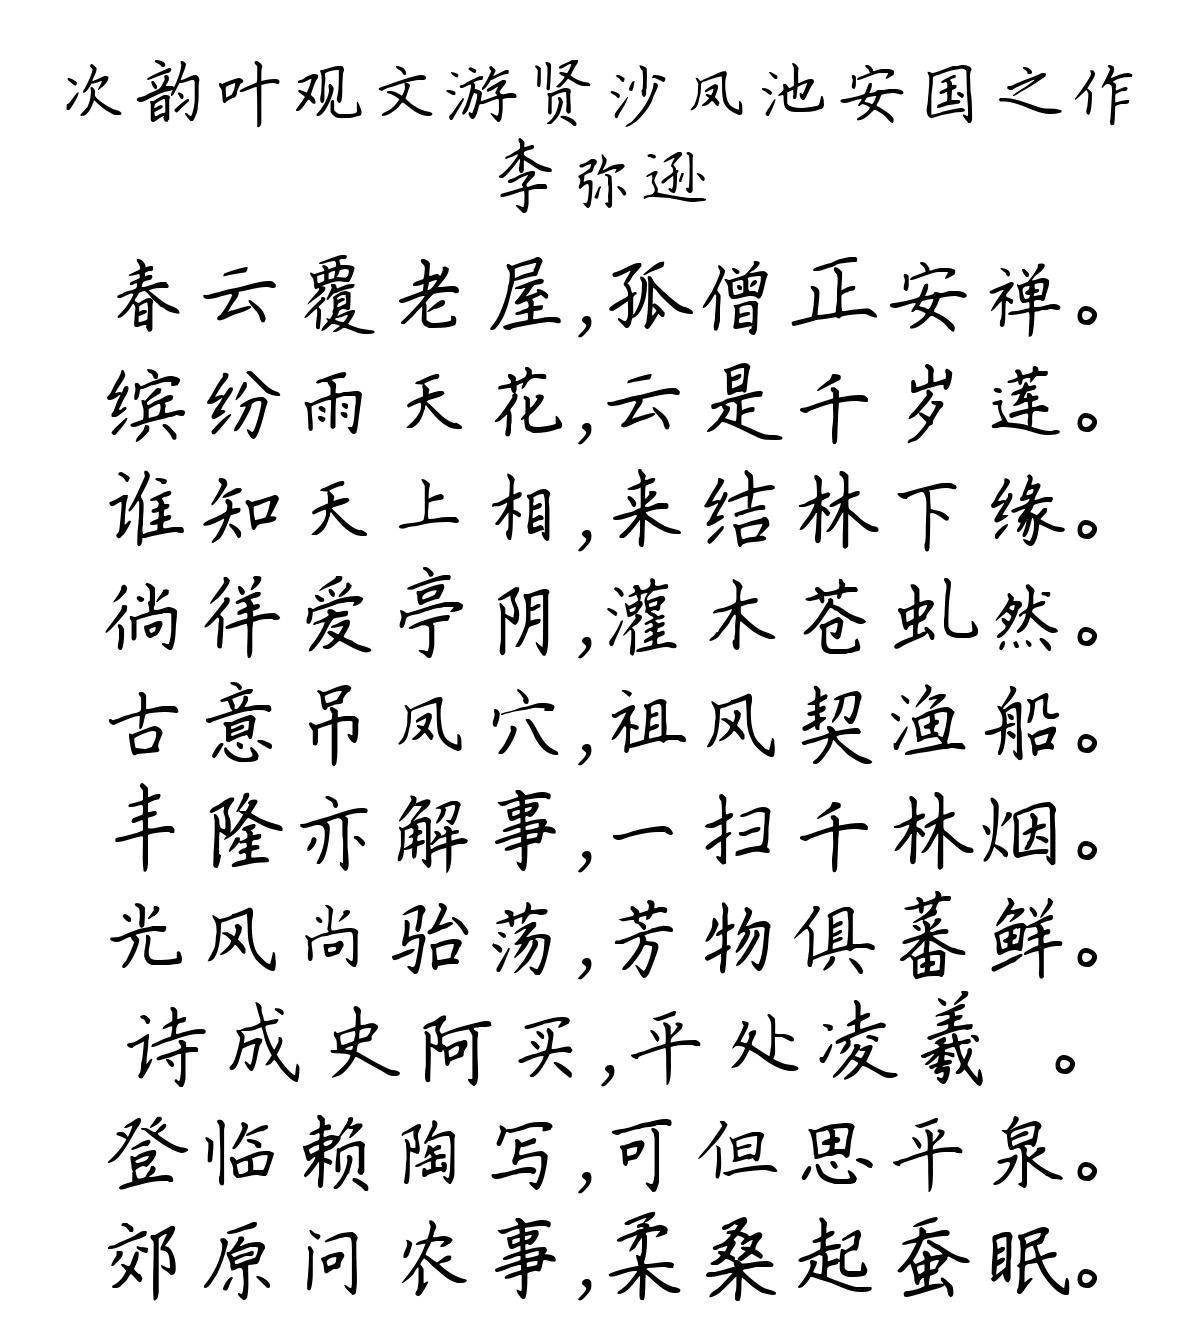 次韵叶观文游贤沙凤池安国之作
李弥逊
春云覆老屋,孤僧正安禅。
缤纷雨天花,云是千岁莲。
谁知天上相,来结林下缘。
徜徉爱亭阴,灌木苍虬然。
古意吊凤穴,祖风契渔船。
丰隆亦解事,一扫千林烟。
光风尚骀荡,芳物俱蕃鲜。
诗成史阿买,平处凌羲 。
登临赖陶写,可但思平泉。
郊原问农事,柔桑起蚕眠。